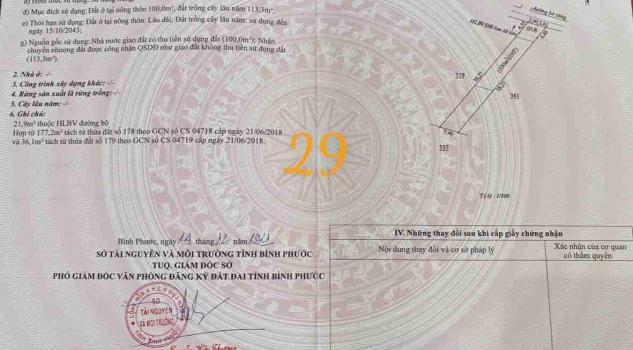 đ) Mục đích sử dụng: Đất ở tại nông thôn 100,0m², đất trồng cây lâu năm 113,3m²,
e) Thời hạn sử dụng: Đất ở tại nông thôn: Lâu dài; Đất trồng cây lâu năm: sử dụng đến
ngày 15/10/2043;
g) Nguồn gốc sử dụng: Nhà nước giao đất có thu tiền sử dụng đất (100,0m²); Nhận
chuyển nhượng đất được công nhận QSDĐ như giao đất không thu tiền sử dụng đất
(113,3m²).
2. Nhà ở: -/-
3. Công trình xây dựng khác: -/-
4. Rừng sản xuất là rừng trồng: -/-
5. Cây lâu năm: -/-
6. Ghi chú:
21,9m² thuộc HLBV đường bộ
Hợp từ 177,2m² tách từ thửa đất số 178 theo GCN số CS 04718 cấp ngày 21/06/2018
và 36,1m² tách từ thửa đất số 179 theo GCN số CS 04719 cấp ngày 21/06/2018.
29
đường bê tông
379
381
357
Tỷ lệ : 1/500
Bình Phước, ngày tháng 12 năm 2021
SỞ TÀI NGUYÊN VÀ MÔI TRƯỜNG TỈNH BÌNH PHƯỚC
TUQ. GIÁM ĐỐC SỞ
PHÓ GIÁM ĐỐC VĂN PHÒNG ĐĂNG KÝ ĐẤT ĐAI TỈNH BÌNH PHƯỚC
SỞ
TÀI NGUYÊN
VÀ MÔI TRƯỜNG
TỈNH BÌNH PHƯỚC
IV. Những thay đổi sau khi cấp giấy chứng nhận
Nội dung thay đổi và cơ sở pháp lý
Xác nhận của cơ quan
có thẩm quyền